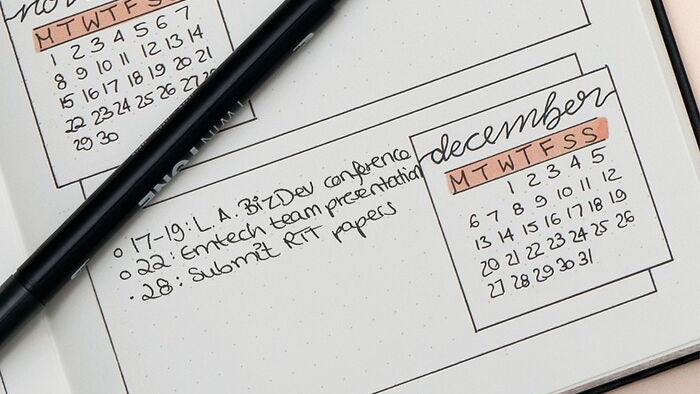 M T W T F S S
1 2 3 4 5 6 7
8 9 10 11 12 13 14
15 16 17 18 19 20 21
22 23 24 25 26 27
29 30
december
M T W T F S S
1 2 3 4 5
6 7 8 9 10 11 12
13 14 15 16 17 18 19
20 21 22 23 24 25 26
27 28 29 30 31
17-19: L.A. BizDev conference
22: Emtech team presentation
28: Submit RTT papers